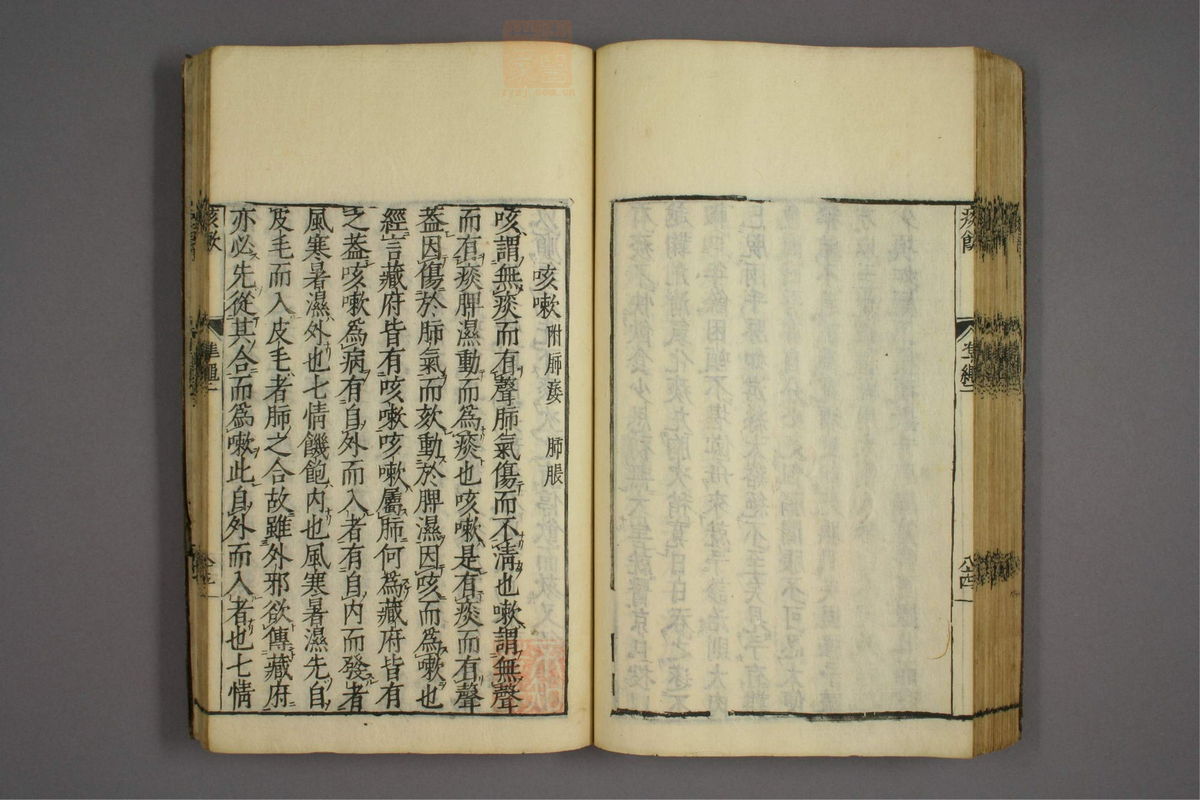 痰飲
準繩
咳嗽 附肺痿 肺脹
咳謂無痰而有聲肺氣傷而不清也嗽謂無聲
而有痰脾濕動而為痰也咳嗽是有痰而有聲
蓋因傷於肺氣而欬動於脾濕因咳而為嗽也
經言藏府皆有咳嗽咳嗽屬肺何為藏府皆有
之蓋咳嗽為病有自外而入者有自内而發者
風寒暑濕外也七情饑飽内也風寒暑濕先自
皮毛而入皮毛者肺之合故雖外邪欲傳藏府
亦必先從其合而為嗽此自外而入者也七情
咳嗽
準繩